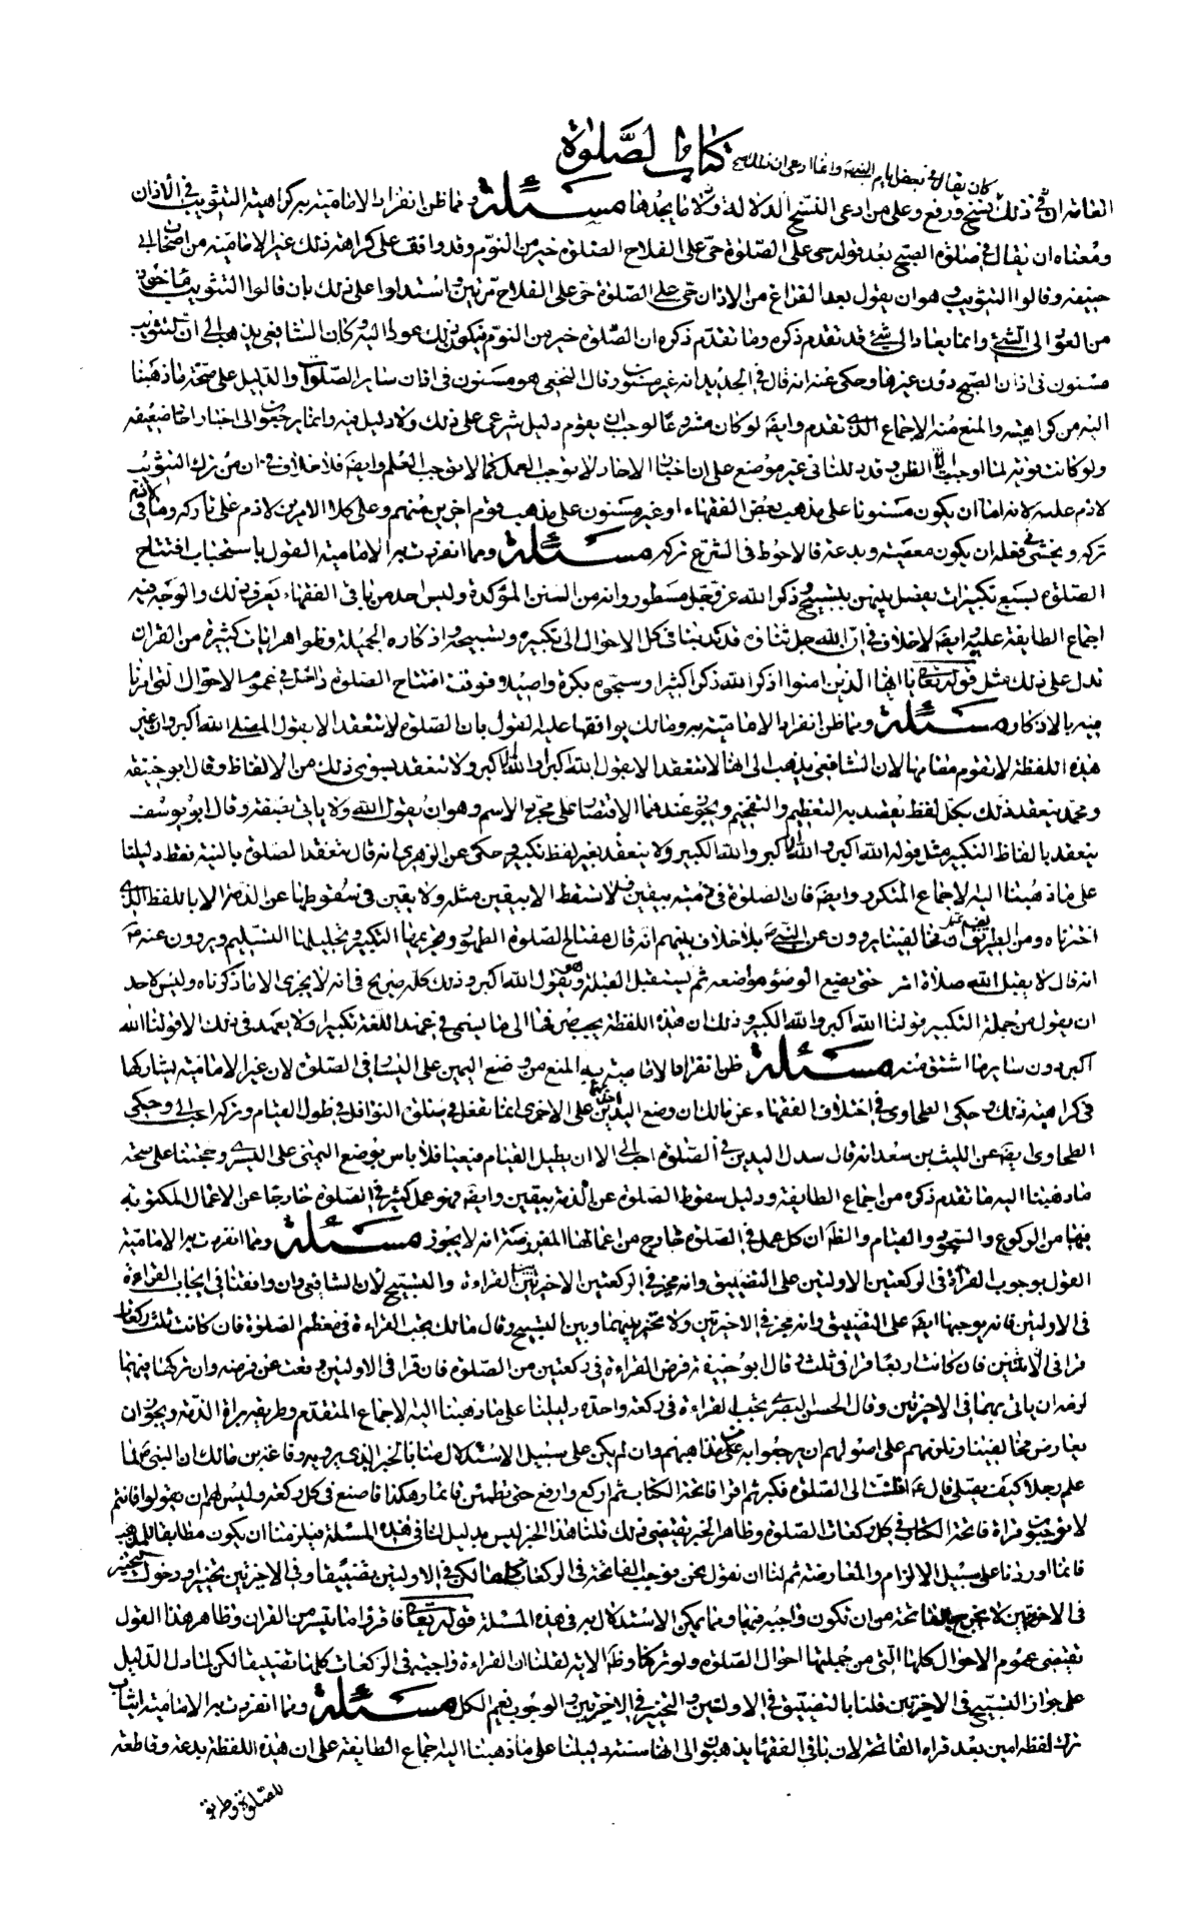 كتاب الصلوة
كان يقال في بعض ايام النبي ص وانما ادعى ان ذلك نسخ
العامة ان ذلك نسخ ورفع وعلى من ادعى النسخ الدلالة له ولا ما يجدها مسئلة ومما ظن انفراد الامامية به كراهية التثويب في الأذان
ومعناه ان يقال في صلوة الصبح بعد قوله حي على الصلوة حي على الفلاح الصلوة خير من النوم وقد وافق على كراهة ذلك غير الامامية من اصحاب ابي
حنيفة وقالوا التثويب هو ان يقول بعد الفراغ من الاذان حي على الصلوة حي على الفلاح مرتين واستدلوا على ذلك بان قالوا التثويب مأخوذ
من العود الى الشئ وانما يعاد الى شئ قد تقدم ذكره وما تقدم ذكره ان الصلوة خير من النوم فيكون ذلك عودا اليه وكان الشافعي يذهب الى ان التثويب
مسنون في اذان الصبح دون غيرها وحكى عنه انه قال في الجديد انه غير مسنون وقال النخعي هو مسنون في اذان ساير الصلوات والدليل على صحة ما ذهبنا
اليه من كراهيته والمنع منه الاجماع الذي تقدم وايضا لو كان مشروعا لوجب ان يقوم دليل شرعي على ذلك ولا دليل فيه وانما يرجعون الى اخبار احاد ضعيفة
ولو كانت قوية لما اوجبت الا الظن وقد دللنا في غير موضع على ان اخبار الاحاد لا توجب العمل كما لا توجب العلم وايضا فلا خلاف في ان من ترك التثويب
لا ذم عليه لانه اما ان يكون مسنونا على مذهب بعض الفقهاء او غير مسنون على مذهب قوم اخرين منهم وعلى كلا الامرين لا ذم على تاركه وما لا ذم في
تركه ويخشى في فعله ان يكون معصية وبدعة فالاحوط في الشرع تركه مسئلة ومما انفردت به الامامية القول باستحباب افتتاح
الصلوة بسبع تكبيرات يفصل بينهن بتسبيح وذكر الله عز وجل مسطور وانه من السنن المؤكدة وليس احد من باقي الفقهاء يعرف ذلك والوجه فيه
اجماع الطايفة عليه وايضا لا خلاف في ان الله جل ثناؤه قد ندبنا في كل الاحوال الى تكبيره وتسبيحه واذكاره الجميلة وظواهر ايات كثيرة من القران
تدل على ذلك مثل قوله تعالى يا ايها الذين امنوا اذكروا الله ذكرا كثيرا وسبحوه بكرة واصيلا فوقت افتتاح الصلوة داخل في عموم الاحوال التي امرنا
فيه بالاذكار مسئلة ومما ظن انفراد الامامية به ومالك يوافقها عليه القول بان الصلوة لا تنعقد الا بقول المصلي الله اكبر وان غير
هذه اللفظة لا يقوم مقامها لان الشافعي يذهب الى انها لا تنعقد الا بقول الله اكبر او الله الاكبر ولا تنعقد بسوى ذلك من الالفاظ وقال ابو حنيفة
ومحمد تنعقد ذلك بكل لفظ يقصد به التعظيم والتفخيم ويجوز عندهما الاقتصار على مجرد الاسم وهو ان يقول الله ولا ياتي بصفة وقال ابو يوسف
ينعقد بالفاظ التكبير مثل قوله الله اكبر والله الاكبر والله الكبير ولا ينعقد بغير لفظ تكبير وحكى عن الزهري انه قال تنعقد الصلوة بالنية فقط دليلنا
على ما ذهبنا اليه الاجماع المتكرر وايضا فان الصلوة في ذمته بيقين فلا تسقط الا بيقين مثله ولا يقين في سقوطها عن الذمة الا باللفظ الذي
اخترناه ومن الطريف ان مخالفينا يروون عن النبي ص بلا خلاف بينهم انه قال مفتاح الصلوة الطهور وتحريمها التكبير وتحليلها التسليم ويروون عنه ص
انه قال لا يقبل الله صلاة امرء حتى يضع الوضوء مواضعه ثم يستقبل القبلة ويقول الله اكبر وذلك كله صريح في انه لا يجزى الا ما ذكرناه وليس لاحد
ان يقول من جملة التكبير قولنا الله اكبر والله الكبير وذلك ان هذه اللفظة يجب صرفها الى ما يسمى في عهد اللغة تكبيرا ولا يعهد في ذلك الا قولنا الله
اكبر دون ساير ما اشتق منه مسئلة ظن انفراد الامامية به المنع من وضع اليمين على اليسار في الصلوة لان غير الامامية يشاركها
في كراهية ذلك وحكى الطحاوي في اختلاف الفقهاء عن مالك ان وضع اليدين احديهما على الاخرى انما تفعل في صلوة النوافل في طول القيام وتركه احب الي وحكى
الطحاوي ايضا عن الليث بن سعد انه قال سدل اليدين في الصلوة احب الي الا ان يطيل القيام فيعيى فلا باس بوضع اليمنى على اليسرى وحجتنا على صحة
ما ذهبنا اليه ما تقدم ذكره من اجماع الطايفة ودليل سقوط الصلوة عن الذمة بيقين وايضا فهو عمل كثير في الصلوة خارجا عن الاعمال المكتوبة
فيها من الركوع والسجود والقيام والظاهر ان كل عمل في الصلوة خارج من اعمالها المفروضة انه لا يجوز مسئلة ومما انفردت به الامامية
القول بوجوب القراءة في الركعتين الاولتين على التضييق وانه مخير في الركعتين الاخريين بين القراءة والتسبيح لان الشافعي وان وافقنا في ايجاب القراءة
في الاولتين فانه يوجبها ايضا على التضييق وانه مجز في الاخرتين ولا تخير بينهما وبين التسبيح وقال مالك يجب القراءة في معظم الصلوة فان كانت ثلث ركعات
قرا في الاثنتين فان كانت اربعا قرا في ثلث وقال ابو حنيفة فرض القراءة في ركعتين من الصلوة فان قرا في الاولتين وقعت عن فرضه وان تركها فيهما
لزمه ان ياتي بهما في الاخرتين وقال الحسن البصري يجب القراءة في ركعة واحدة دليلنا على ما ذهبنا اليه الاجماع المتقدم وطريقه براءة الذمة ويجوز ان
يعارض مخالفينا ويلزمهم على اصولهم ان يرجعوا به على مذاهبهم وان لم يكن على سبيل الاستدلال منا بالخبر الذي يرويه رفاعة بن مالك ان النبي ص لما
علم رجلا كيف يصلي قال ع اذا قمت الى الصلوة فكبر ثم اقرا فاتحة الكتاب ثم اركع وارفع حتى تطمئن قائما وهكذا فاصنع في كل ركعة وليس لهم ان يقولوا فانتم
لا توجبون قراءة فاتحة الكتاب في كل ركعات الصلوة وظاهر الخبر يقتضي ذلك قلنا هذا الخبر ليس بدليل لنا في هذه المسئلة فيلزمنا ان يكون مطابقا للمذهب
فانما اوردناه على سبيل الالزام والمعارضة ثم لنا ان نقول نحن نوجب الفاتحة في الركعات كلها لكن في الاولتين تضييقا وفي الاخرتين تخييرا ودخول التخيير
في الاخرتين لا يخرج الفاتحة من ان تكون واجبة فيهما ومما يمكن الاستدلال به في هذه المسئلة قوله تعالى فاقرؤا ما تيسر من القران وظاهر هذا القول
تقتضي عموم الاحوال كلها التي من جملتها احوال الصلوة ولو تركنا وظاهر الاية لقلنا ان القراءة واجبة في الركعات كلها تضييقا لكن لما دل الدليل
على جواز التسبيح في الاخرتين قلنا بالتضييق في الاولتين والتخيير في الاخرتين والوجوب يعم الكل مسئلة ومما انفردت به الامامية ايثار
ترك لفظة امين بعد قراءة الفاتحة لان باقي الفقهاء يذهبون الى انها سنة دليلنا على ما ذهبنا اليه اجماع الطايفة على ان هذه اللفظة بدعة وقاطعة
للصلوة وطريقة